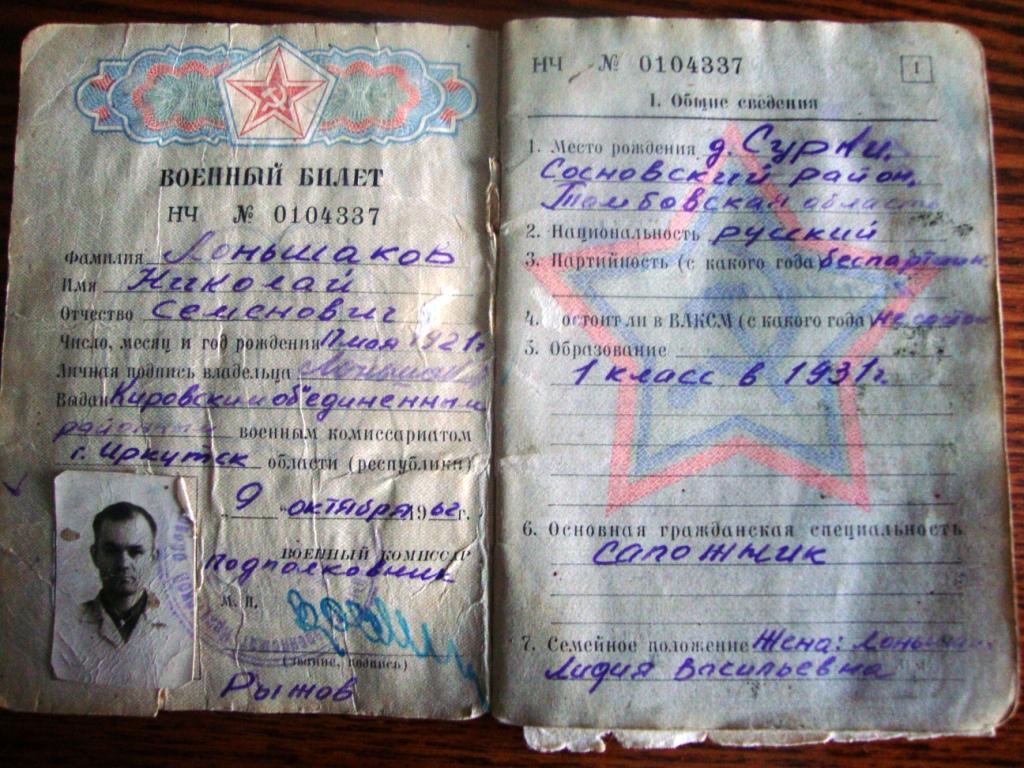 ВОЕННЫЙ БИЛЕТ
НЧ № 0104337
Фамилия Лоньшаков
Имя Николай
Отчество Семенович
Число, месяц и год рождения 17 мая 1921 г
Личная подпись владельца
Выдан Кировским объединенным
районным военным комиссариатом
г. Иркутск области (республики)
9 октября 1962 г.
ВОЕННЫЙ КОМИССАР
Подполковник
М. П.
(звание, подпись)
Рыжов
НЧ № 0104337
1
I. Общие сведения
1. Место рождения д. Сурки.
Сосновский район,
Тамбовская область
2. Национальность русский
3. Партийность (с какого года) беспартийн.
4. Состоит ли в ВЛКСМ (с какого года) не состоит
5. Образование
1 класс в 1931 г.
6. Основная гражданская специальность
сапожник
7. Семейное положение Жена:
Лидия Васильевна